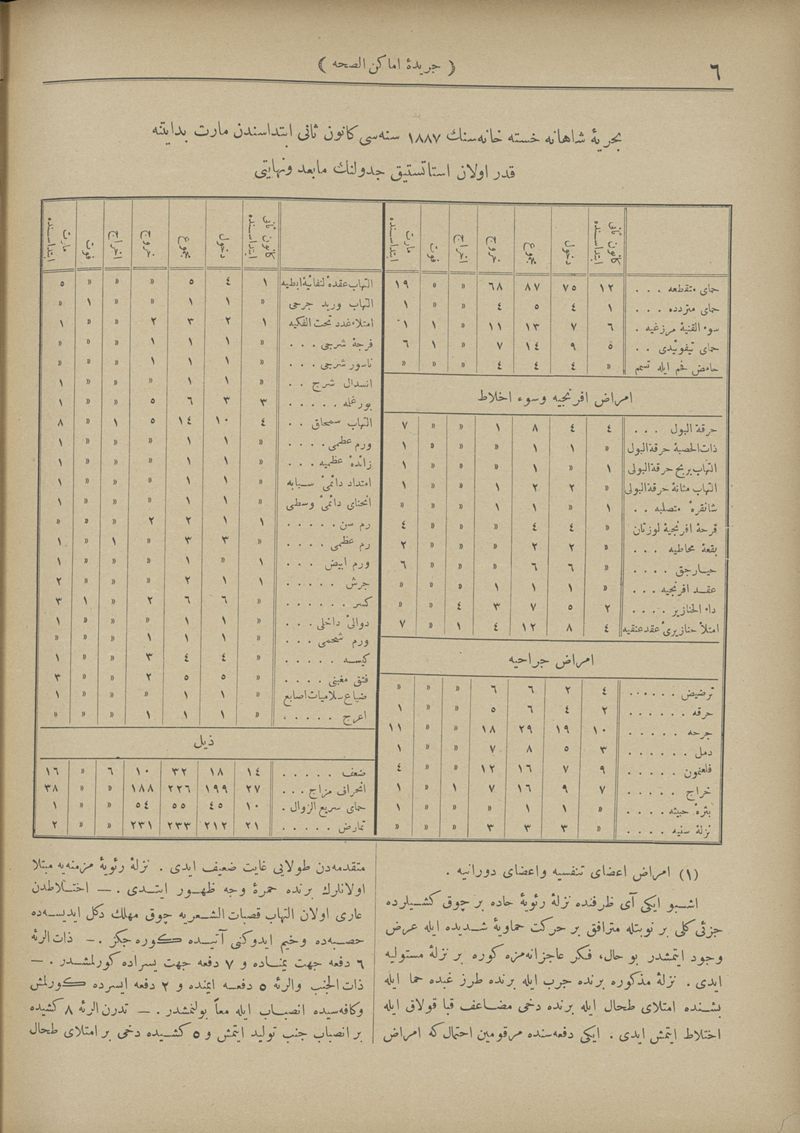 ٦
( جريدۀ اماكن الصحه )
بحريۀ شاهانه خسته خانه‌سنك ١٨٨٧ سنه‌سى كانون ثانى ابتداسندن مارت بدايتنه
قدر اولان استاتستيق جدولنك مابعد ونهايتى
كانون ثانى ابتداسنده دخول مجموع خروج اخراج فوت مارت ابتداسنده
حماى متقطعه . . . ١٢ ٧٥ ٨٧ ٦٨ » » ١٩
حماى متردده . . . ١ ٤ ٥ ٤ » » ١
سوء القنيۀ مرزغيه . ٦ ٧ ١٣ ١١ » ١ ١
حماى تيفوئيدى . . ٥ ٩ ١٤ ٧ » ١ ٦
حامض فحم ايله تسمم » ٤ ٤ ٤ » » »
امراض افرنجيه وسوء اخلاط
حرقة البول . . . ٤ ٤ ٨ ١ » » ٧
ذات الخصيۀ حرقة البول » ١ ١ » » » ١
التهاب بربخ حرقة البولى ١ » ١ » » » ١
التهاب مثانۀ حرقة البولى » ٢ ٢ ١ » » ١
شانقرۀ متصلبه . . ١ » ١ ١ » » »
قرحۀ افرنجيۀ لوزتان » ٤ ٤ » » » ٤
بقعۀ مخاطيه . . . » ٢ ٢ » » » ٢
خيارجق . . . . » ٦ ٦ » » » ٦
عقد افرنجيه . . . » ١ ١ ١ » » »
داء الخنازير . . . . ٢ ٥ ٧ ٣ ٤ » »
امتلاء خنازيرئ عقد عنقيه ٤ ٨ ١٢ ٤ ١ » ٧
امراض جراحيه
ترضيض . . . . . . ٤ ٢ ٦ ٦ » » »
حرقه . . . . . . ٢ ٤ ٦ ٥ » » ١
جرحه . . . . . ١٠ ١٩ ٢٩ ١٨ » » ١١
دمل . . . . . . ٣ ٥ ٨ ٧ » » ١
فلغمون . . . . . ٩ ٧ ١٦ ١٢ » » ٤
خراج . . . . . ٧ ٩ ١٦ ٧ ١ » ١
بثرۀ خبيثه . . . . » ١ ١ » » » ١
نزلۀ سنيه . . . . » ٣ ٣ ٣ » » »
كانون ثانى ابتداسنده دخول مجموع خروج اخراج فوت مارت ابتداسنده
التهاب عقدۀ لنفائيۀ ابطيه ١ ٤ ٥ » » » ٥
التهاب وريد جرحى » ١ ١ » » ١ »
امتلاء غدد تحت الفكيه ١ ٢ ٣ ٢ » » ١
قرحۀ شرجى . . . . » ١ ١ ١ » » »
ناسور شرجى . . . » ١ ١ ١ » » »
انسدال شرج . . » ١ ١ » » » ١
بورغله . . . . . ٣ ٣ ٦ ٥ » » ١
التهاب سمحاق . . ٤ ١٠ ١٤ ٥ ١ » ٨
ورم عظمى . . . . » ١ ١ » » » ١
زائدۀ عظميه . . . » ١ ١ » » » ١
امتداد دائمئ سبابه » ١ ١ » » » ١
انحناى دائمئ وسطى » ١ ١ » » » ١
رم سن . . . . . ١ ١ ٢ ٢ » » »
رم عظمى . . . . » ٣ ٣ » ١ » ١
ورم ابيض . . . ١ » ١ » » » ١
جرش . . . . . ١ ١ ٢ » » » ٢
كسر . . . . . . » ٦ ٦ ٢ » ١ ٣
دوالئ داخلى . . . » ١ ١ » » » ١
ورم شحمى . . . » ١ ١ ١ » » »
كيسه . . . . . » ٤ ٤ ٣ » » ١
فتق مغبنى . . . . » ٥ ٥ ٢ » » ٣
ضياع سلاميات اصابع » ١ ١ » » » ١
اعرج . . . . . » ١ ١ ١ » » »
ذيل
ضعف . . . . . ١٤ ١٨ ٣٢ ١٠ ٦ » ١٦
انحراف مزاج . . . ٢٧ ١٩٩ ٢٢٦ ١٨٨ » » ٣٨
حماى سريع الزوال . ١٠ ٤٥ ٥٥ ٥٤ » » ١
تمارض . . . . . ٢١ ٢١٢ ٢٣٣ ٢٣١ » » ٢
(١) امراض اعضاى تنفسيه واعضاى دورانيه .
اشبو ايكى آى ظرفنده نزلۀ رئويۀ حاده بر چوق كشيلرده
جزئى كلى بر نوبتله مترافق بر حركت حماويۀ شديده ايله عرض
وجود ايتمشدر بو حال، فكر عاجزانه‌مزه كوره بر نزلۀ مستوليه
ايدى . نزلۀ مذكوره برنده جرب ايله برنده طرز غبده حما ايله
بشنده امتلاى طحال ايله برنده دخى مضاعف قبا قولاق ايله
اختلاط ايتمش ايدى . ايكى دفعه‌سنده مرقومين احتمال كه امراض
متقدمه‌دن طولايى غايت ضعيف ايدى . نزلۀ رئويۀ مزمنه‌يه مبتلا
اولانلرك برنده حمرۀ وجه ظهور ايتدى . — اختلاطدن
عارى اولان التهاب قصبات الشعريه چوق مهلك دكل ايديسه‌ده
حصبه‌ده وخيم ايدوكنى آتيده كوره‌جكز . — ذات الرئه
٦ دفعه جهت يمناده و ٧ دفعه جهت يسراده كورلمشدر . —
ذات الجنب والرئه ٥ دفعه ايمنده و ٢ دفعه ايسرده كورلمش
وكافه‌سيده انصباب ايله معاً بولنمشدر . — تدرن الرئه ٨ كشيده
بر انصباب جنب توليد ايتمش و ٥ كشيده دخى بر امتلاى طحال